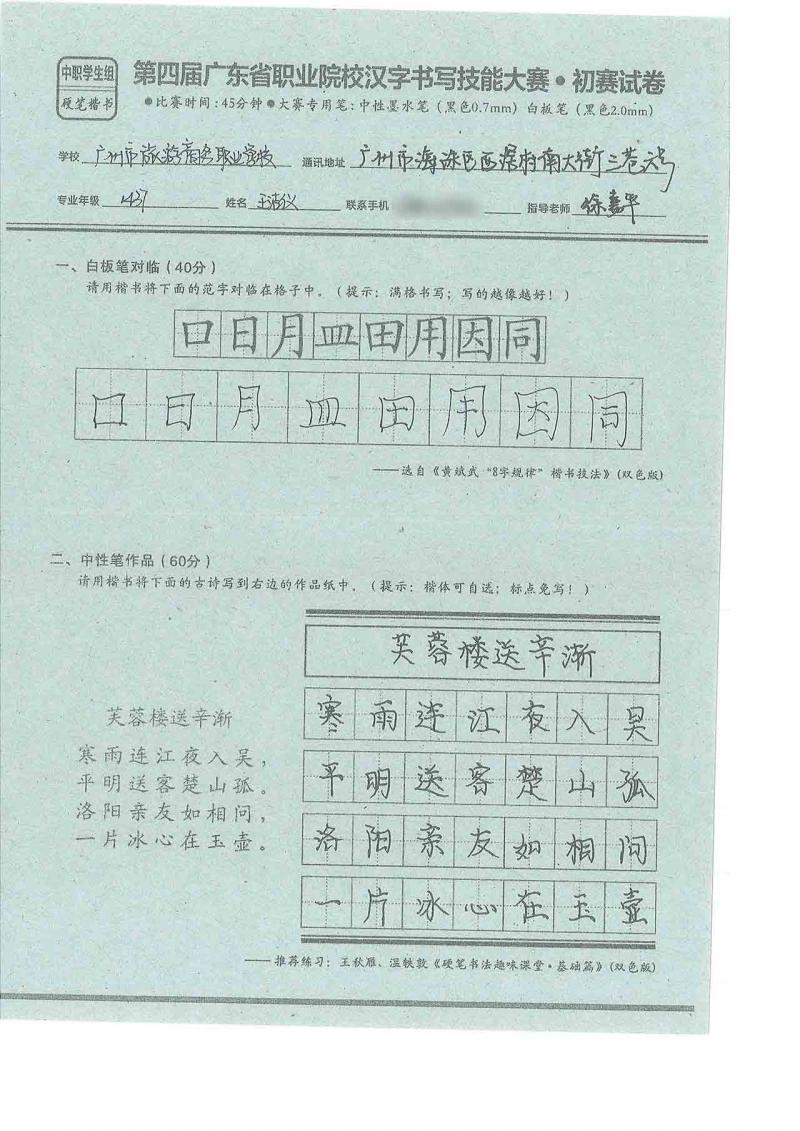 中职学生组
硬笔楷书
第四届广东省职业院校汉字书写技能大赛·初赛试卷
●比赛时间:45分钟●大赛专用笔:中性墨水笔(黑色0.7mm)白板笔(黑色2.0mm)
学校 广州市旅游商务职业学校 通讯地址 广州市海珠区西滘村南大街三巷六号
专业年级 1437 姓名 王洁仪 联系手机 指导老师 徐嘉华
一、白板笔对临(40分)
请用楷书将下面的范字对临在格子中。(提示:满格书写;写的越像越好!)
口日月皿田用因同
口日月皿田用因同
——选自《黄斌武“8字规律”楷书技法》(双色版)
二、中性笔作品(60分)
请用楷书将下面的古诗写到右边的作品纸中。(提示:楷体可自选;标点免写!)
芙蓉楼送辛渐
寒雨连江夜入吴,
平明送客楚山孤。
洛阳亲友如相问,
一片冰心在玉壶。
芙蓉楼送辛渐
寒雨连江夜入吴
平明送客楚山孤
洛阳亲友如相问
一片冰心在玉壶
——推荐练习:王秋雁、温轶敦《硬笔书法趣味课堂·基础篇》(双色版)